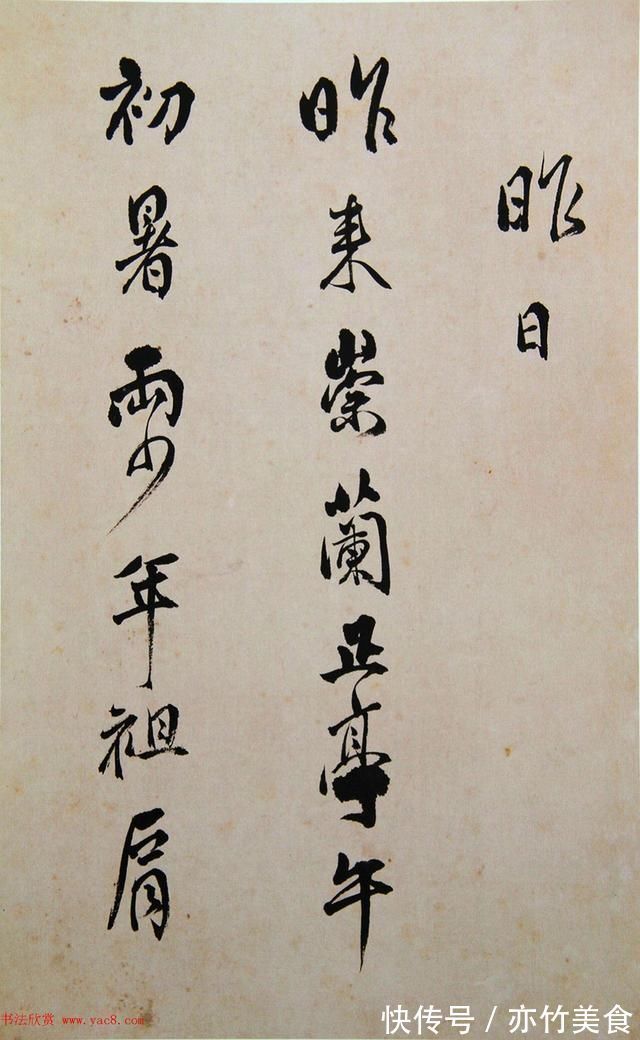 昨日
昨来崇兰正亭午
初暑两少年祖肩
书法欣赏 www.yac8.com
快传号 / 亦竹美食